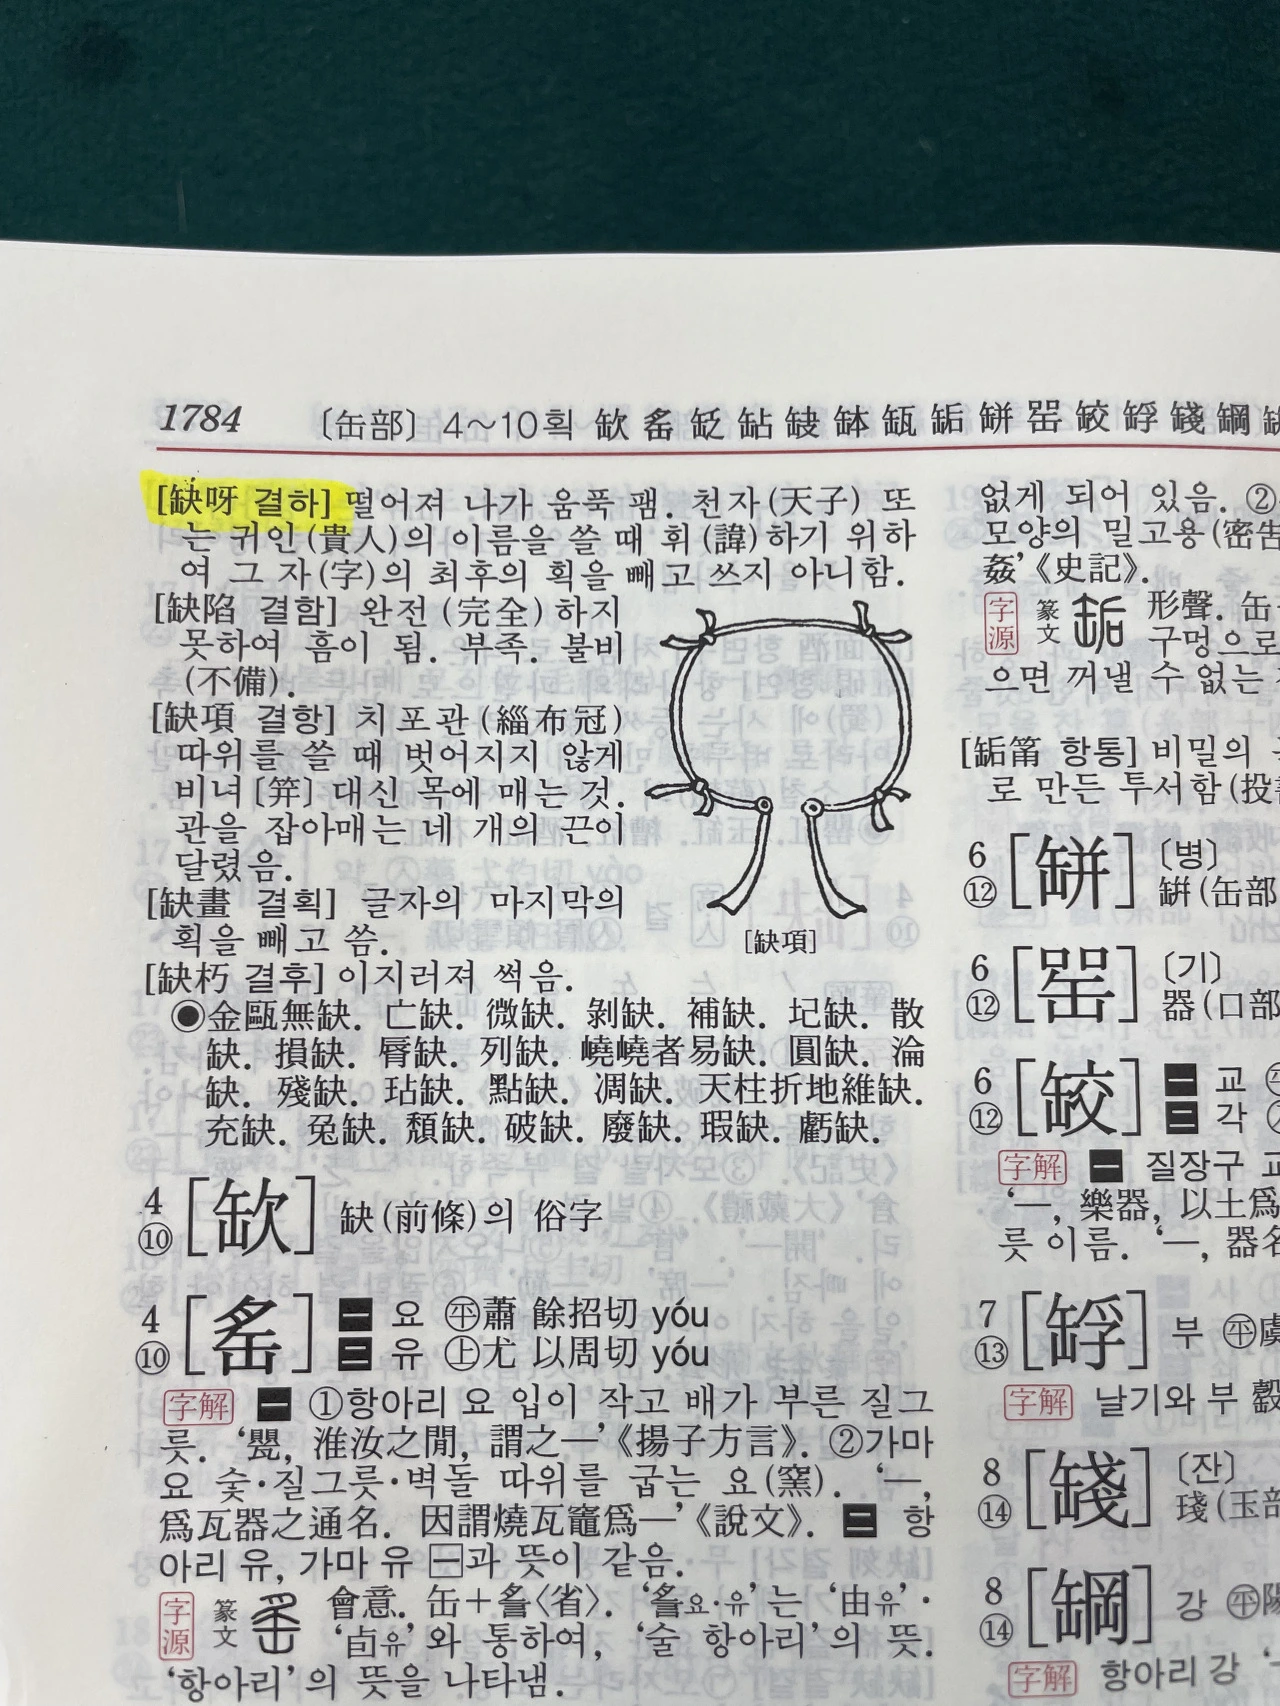 1784 〔缶部〕 4～10획 缼 䍃 缻 鉆 䍆 缽 瓴 缿 缾 罌 䍊 䍌 䍎 䍐
[缺呀 결하] 떨어져 나가 움푹 팸. 천자(天子) 또
는 귀인(貴人)의 이름을 쓸 때 휘(諱)하기 위하
여 그 자(字)의 최후의 획을 빼고 쓰지 아니함.
[缺陷 결함] 완전(完全)하지
못하여 흠이 됨. 부족. 불비
(不備).
[缺項 결항] 치포관(緇布冠)
따위를 쓸 때 벗어지지 않게
비녀[笄] 대신 목에 매는 것.
관을 잡아매는 네 개의 끈이
달렸음.
[缺項]
[缺畫 결획] 글자의 마지막의
획을 빼고 씀.
[缺朽 결후] 이지러져 썩음.
◉金甌無缺. 亡缺. 微缺. 剝缺. 補缺. 圮缺. 散
缺. 損缺. 脣缺. 列缺. 嶢嶢者易缺. 圓缺. 淪
缺. 殘缺. 玷缺. 點缺. 凋缺. 天柱折地維缺.
充缺. 兔缺. 頹缺. 破缺. 廢缺. 瑕缺. 虧缺.
4 ⑩ [缼] 缺(前條)의 俗字
4 ⑩ [䍃] 一 요 ㊄蕭 餘招切 yóu
二 유 ㊤尤 以周切 yóu
字解 一 ①항아리 요 입이 작고 배가 부른 질그
릇. ‘甖, 淮汝之閒, 謂之―’《揚子方言》. ②가마
요 숯·질그릇·벽돌 따위를 굽는 요(窯). ‘―,
爲瓦器之通名. 因謂燒瓦竈爲―’《說文》. 二 항
아리 유, 가마 유 一과 뜻이 같음.
字源 篆文 會意. 缶＋䍃〈省〉. ‘䍃요·유’는 ‘由유’·
‘卣유’와 통하여, ‘술 항아리’의 뜻.
‘항아리’의 뜻을 나타냄.
없게 되어 있음. ②
모양의 밀고용(密告
姦’《史記》.
字源 篆文 形聲. 缶
구멍으로
으면 꺼낼 수 없는
[缿筩 항통] 비밀의
로 만든 투서함(投
6 ⑫ [缾] 〔병〕
缾(缶部
6 ⑫ 〔기〕
器(口部
6 ⑫ 一 교
二 각
字解 一 질장구 교
‘―, 樂器, 以土爲
릇 이름. ‘―, 器名
7 ⑬ 부 ㊄虞
字解 날기와 부
8 ⑭ 〔잔〕
琖(玉部
8 ⑭ 강 ㊄陽
字解 항아리 강 ‘